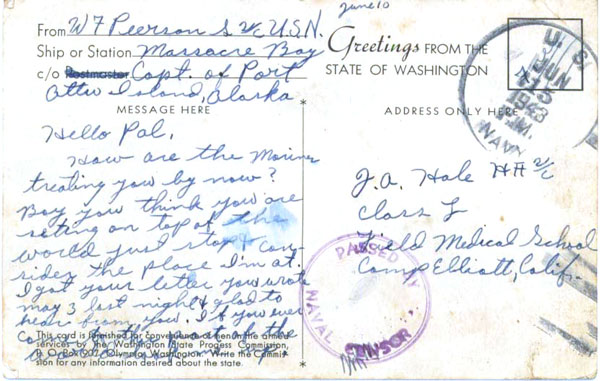 June 10
From W F Peerson S 2/c U.S.N.
Ship or Station Massacre Bay
c/o Postmaster Capt. of Port
Attu Island, Alaska
MESSAGE HERE
Hello Pal,
How are the Marines
treating you by now?
Boy you think you are
setting on top of the
world just stop & con-
sider the place I'm at.
I got your letter you wrote
may 3 last night & glad to
hear from you. If you ever
This card is furnished for convenience of men in the armed
services by the Washington State Progress Commission,
P. O. Box Olympia, Washington. Write the Commis-
sion for any information desired about the state.
Greetings FROM THE
STATE OF WASHINGTON
ADDRESS ONLY HERE
U. S.
JUN
15
1943
NAVY
J.A. Hale HA 2/c
Class L
Field Medical School
Camp Elliott, Calif.
PASSED BY
NAVAL CENSOR